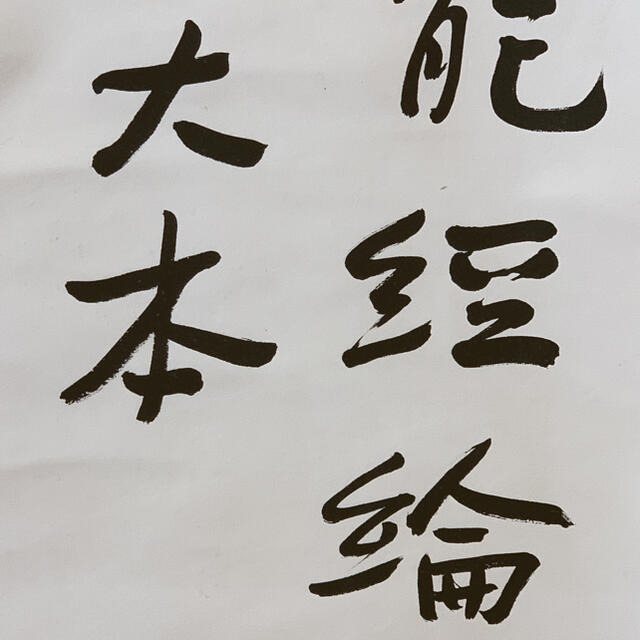 能經綸
大本